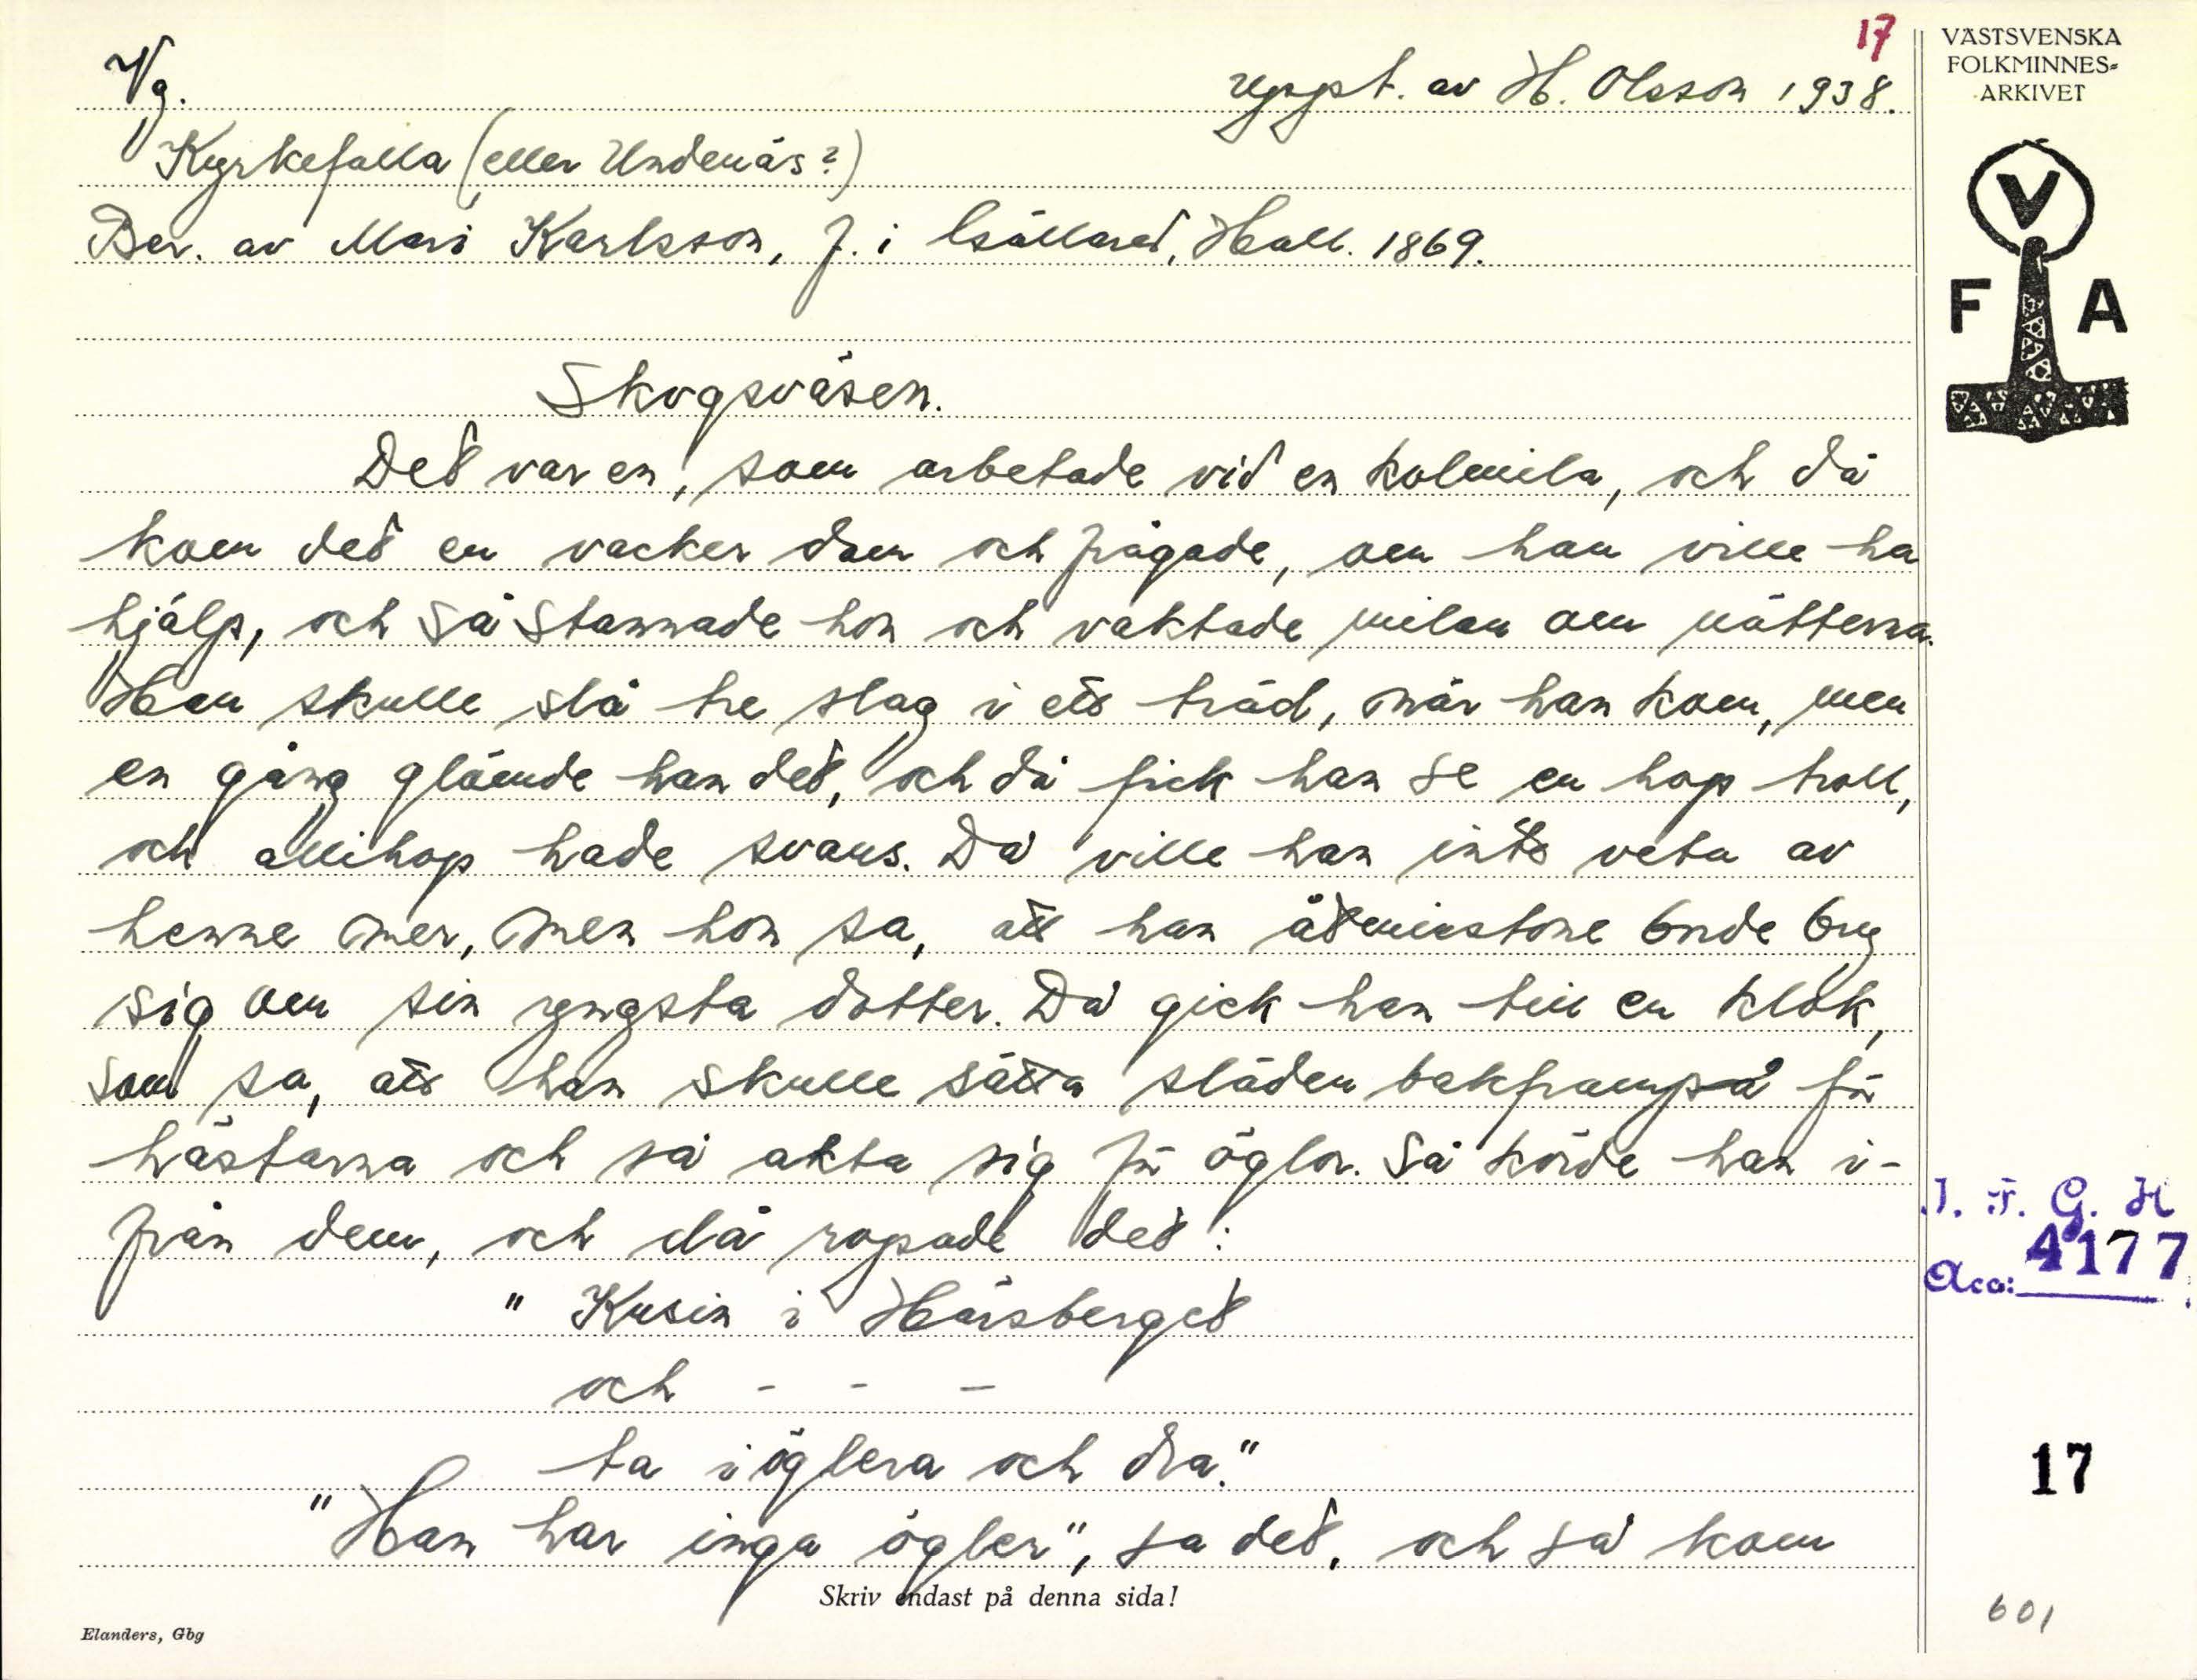 17
Vg.
uppt. av H. Olsson 1938.
Kyrkefalla (eller Undenäs?)
Ber. av Mari Karlsson, f. i Källared, Hall. 1869.
Skogsväsen.
Det var en, som arbetade vid en kolmila, och då
kom det en vacker dam och frågade, om han ville ha
hjälp, och så stannade hon och vaktade milan om nätterna.
Han skulle slå tre slag i ett träd, när han kom, men
en gång glömde han det, och då fick han se en hop troll,
och allihop hade svans. Då ville han inte veta av
henne mer, men hon sa, att han åtminstone borde bry
sig om sin yngsta dotter. Då gick han till en klok,
som sa, att han skulle sätta släden bakframpå för
hästarna och så akta sig för öglor. Så körde han i-
från dem, och då ropade det:
" Kusin i Hårsberget
och - - -
ta i öglera och dra."
"Han har inga ögler", sa det, och så kom
Skriv endast på denna sida!
Elanders, Gbg
VÄSTSVENSKA
FOLKMINNES-
ARKIVET
V
F A
I. F. G. H
Acc: 4177
17
601